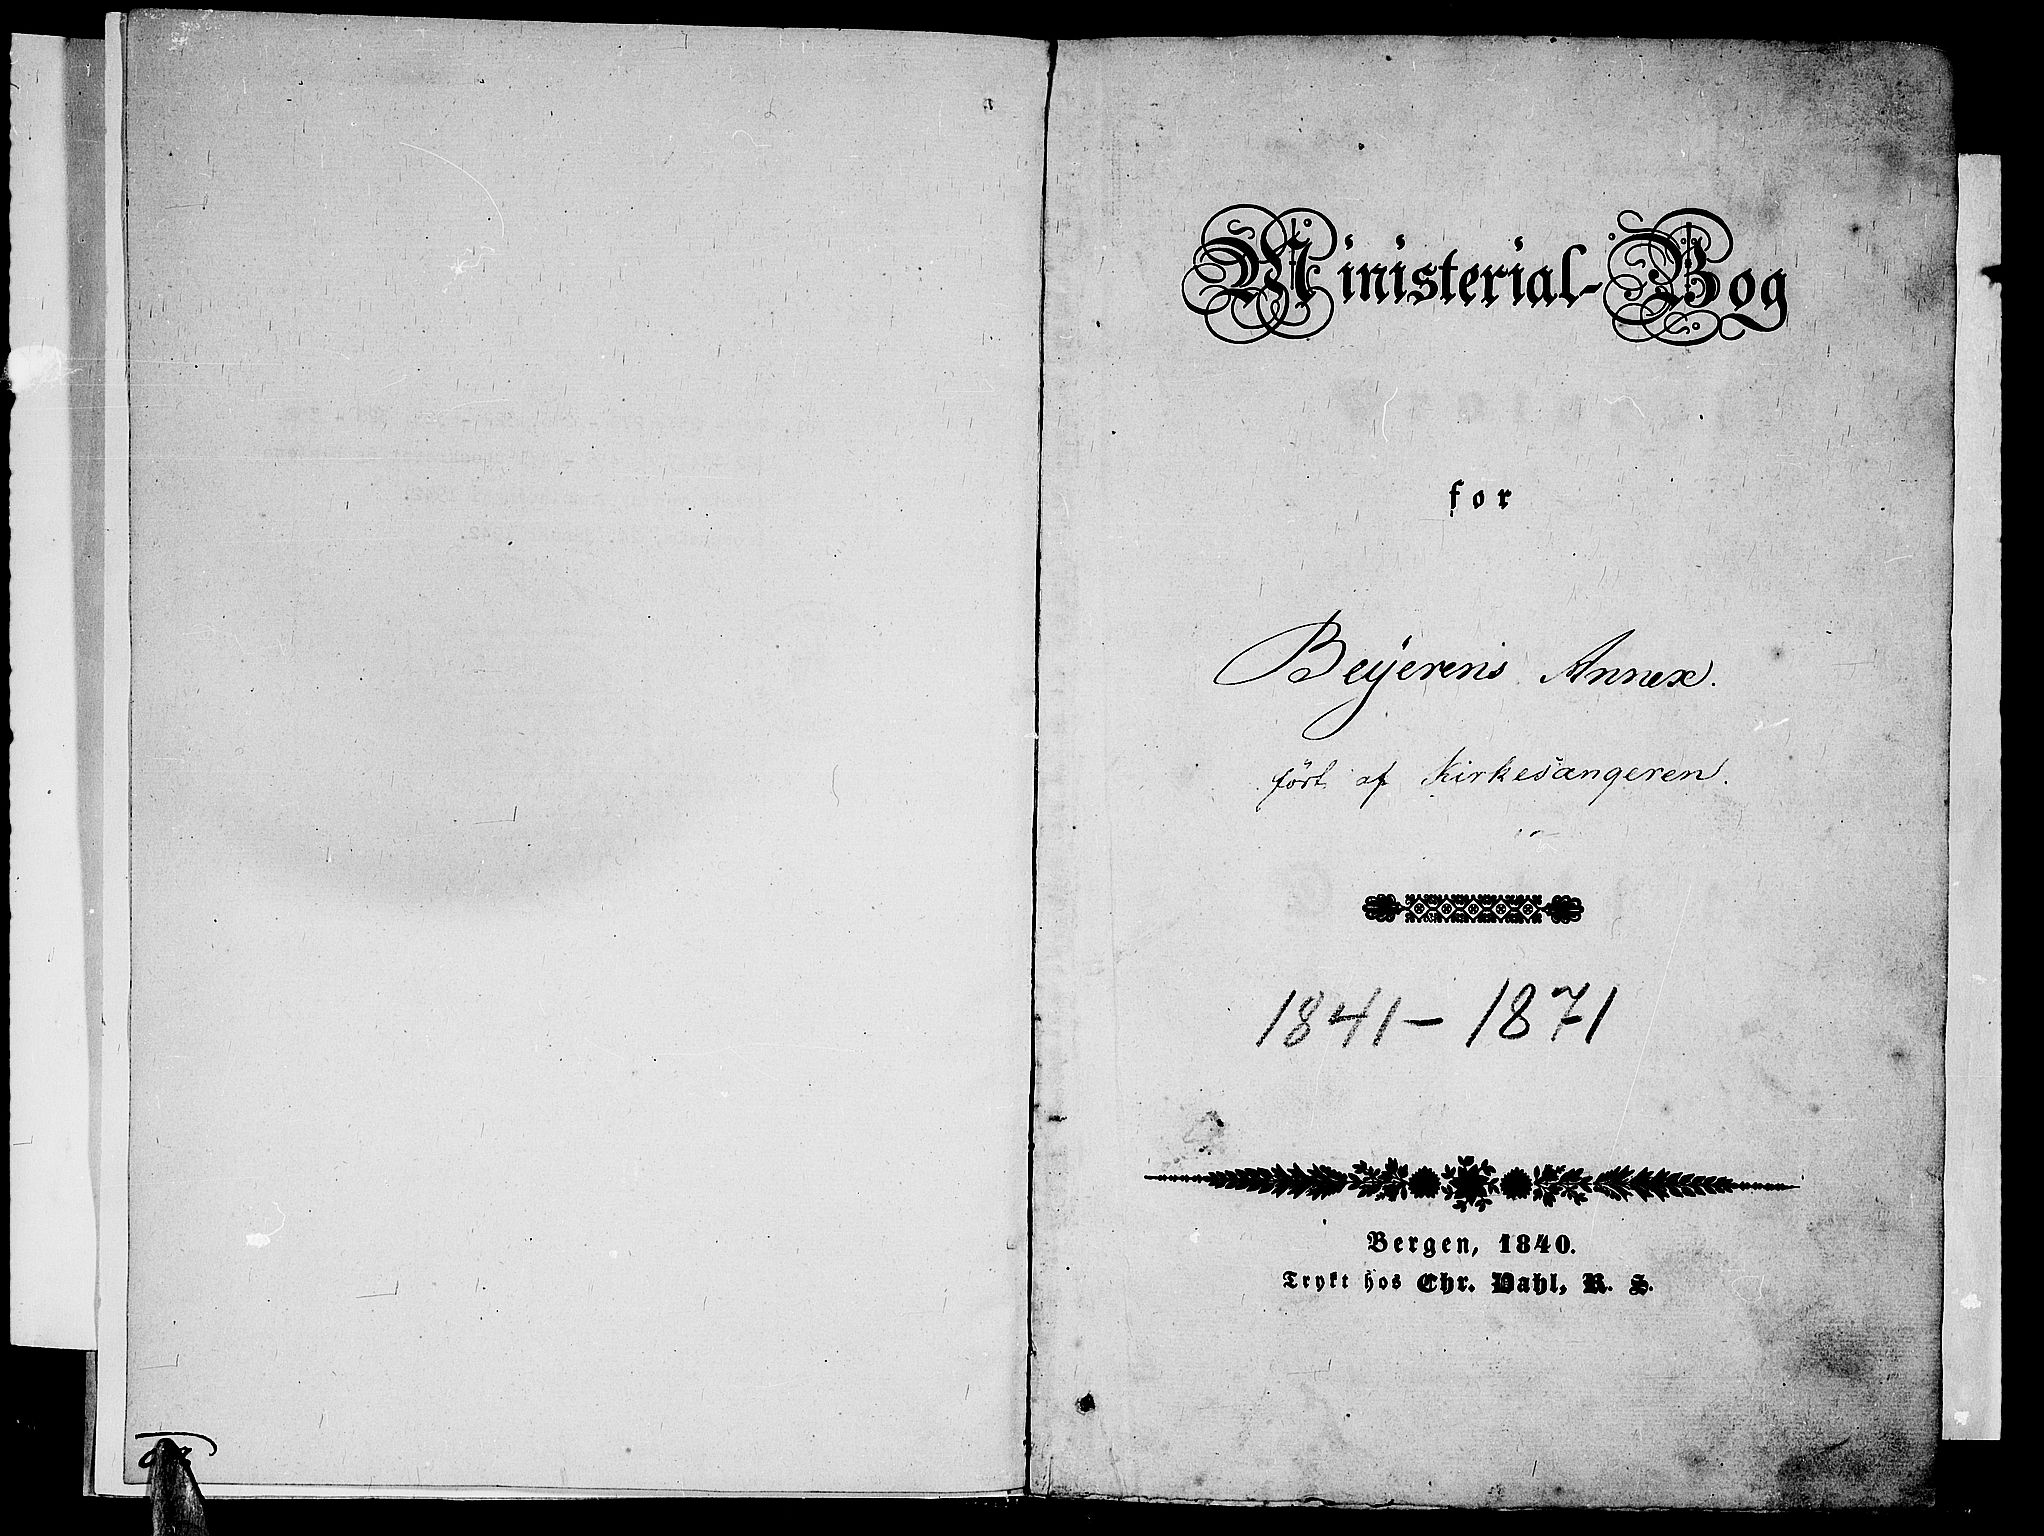 Ministerial-Bog
for
Beÿerens Annex.
ført af Kirkesangeren.
1841-1871
Bergen, 1840.
Trykt hos Chr. Dahl, R. S.